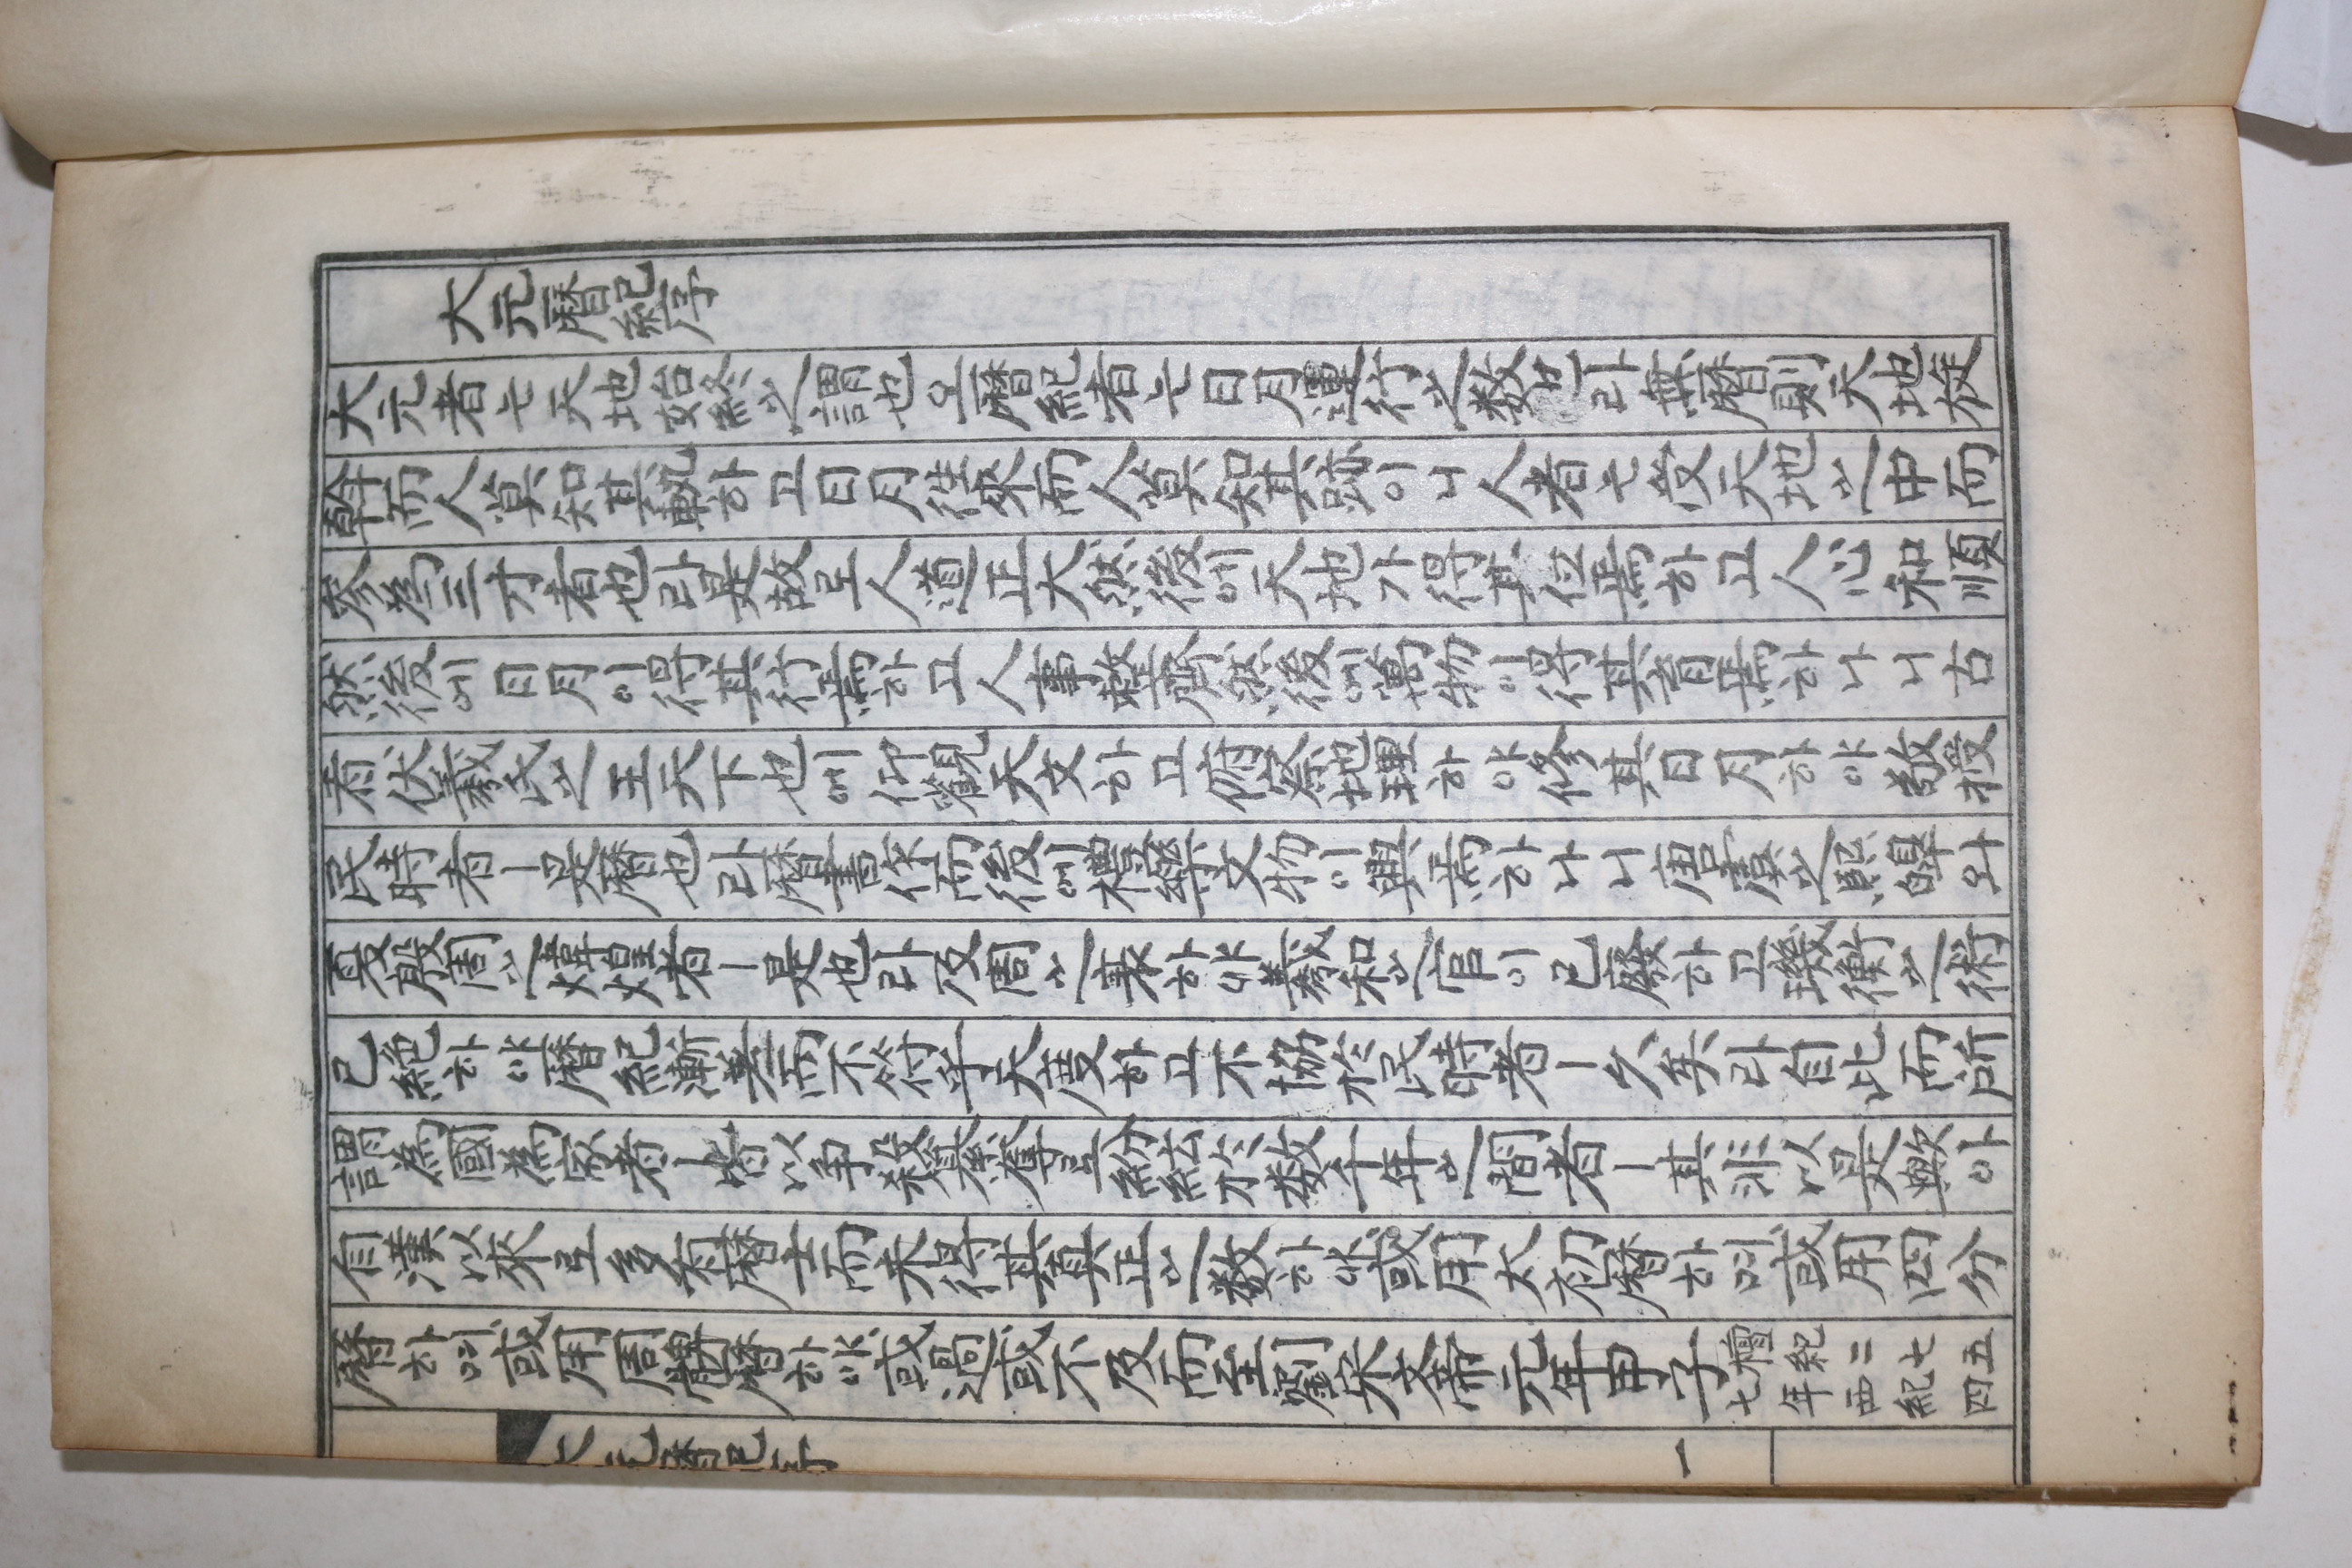 大元曆紀序
大元者는天地始終之謂也오曆紀者는日月運行之數也라無曆則天地旋
斡而人莫知其軌하고日月往來而人莫知其跡이니人者는受天地之中而
參爲三才者也라是故로人道正大然後에天地가得其位焉하고人心和順
然後에日月이得其行焉하고人事整齊然後에萬物이得其育焉하나니古
者伏羲氏之王天下也에仰觀天文하고俯察地理하야修其日月하야敬授
民時者ㅣ是曆也라曆書作而後에禮樂文物이興焉하나니唐虞之熙皞와
夏殷周之煒煌者ㅣ是也라及周之衰하야羲和之官이已廢하고璣衡之術
已絶하야曆紀漸差而不符乎天度하고不協於民時者ㅣ久矣라自此而所
謂爲國爲家者ㅣ皆以爭殺僭奪로紛紜於數千年之間者ㅣ其非以是歟아
自漢以來로多有曆士而未得其眞正之數하야或用太初曆하며或用四分
曆하며或用周髀曆하야或過或不及而至劉宋文帝元年甲子檀紀二七五七年西紀四
大元曆紀序 一